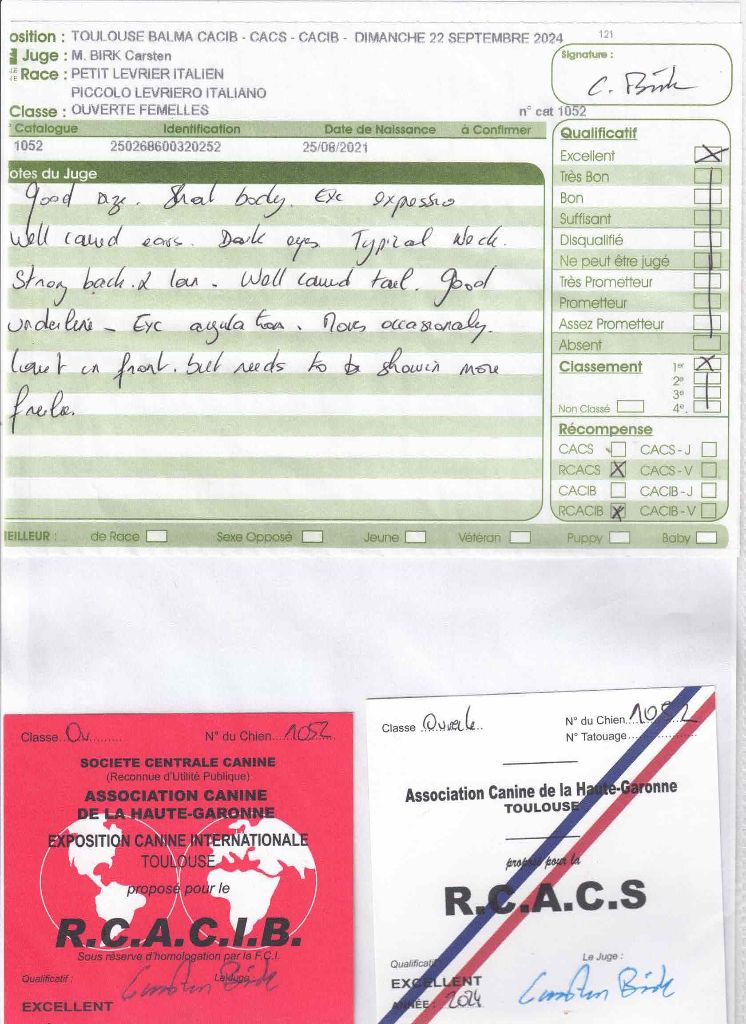 osition : TOULOUSE BALMA CACIB - CACS - CACIB - DIMANCHE 22 SEPTEMBRE 2024
121
Juge : M. BIRK Carsten
Signature :
Race : PETIT LEVRIER ITALIEN
C. Birk
PICCOLO LEVRIERO ITALIANO
Classe : OUVERTE FEMELLES
n° cat 1052
Catalogue Identification Date de Naissance à Confirmer
1052 250268600320252 25/08/2021
otes du Juge
Good size. body. Exc expressio
Well carried ears. Dark eyes Typical Neck.
Strong back. & loin. Well carried tail. Good
underline - Exc angulation. Moves occasionaly.
in front. but needs to be showin more
Qualificatif
Excellent
Très Bon
Bon
Suffisant
Disqualifié
Ne peut être jugé
Très Prometteur
Prometteur
Assez Prometteur
Absent
Classement 1er
2e
3e
Non Classé 4e.
Récompense
CACS CACS - J
RCACS X CACS - V
CACIB CACIB - J
RCACIB X CACIB - V
EILLEUR : de Race Sexe Opposé Jeune Vétéran Puppy Baby
Classe..Ou......... N° du Chien....1052
SOCIETE CENTRALE CANINE
(Reconnue d'Utilité Publique)
ASSOCIATION CANINE
DE LA HAUTE-GARONNE
EXPOSITION CANINE INTERNATIONALE
TOULOUSE
proposé pour le
R.C.A.C.I.B.
Sous réserve d'homologation par la F.C.I.
Qualificatif : Le Juge
Carsten Birk
EXCELLENT
Classe Ouverte N° du Chien....1052
N° Tatouage:
Association Canine de la Haute-Garonne
TOULOUSE
proposé pour la
R.C.A.C.S
Qualificatif Le Juge :
EXCELLENT
ANNÉE : 2024
Carsten Birk